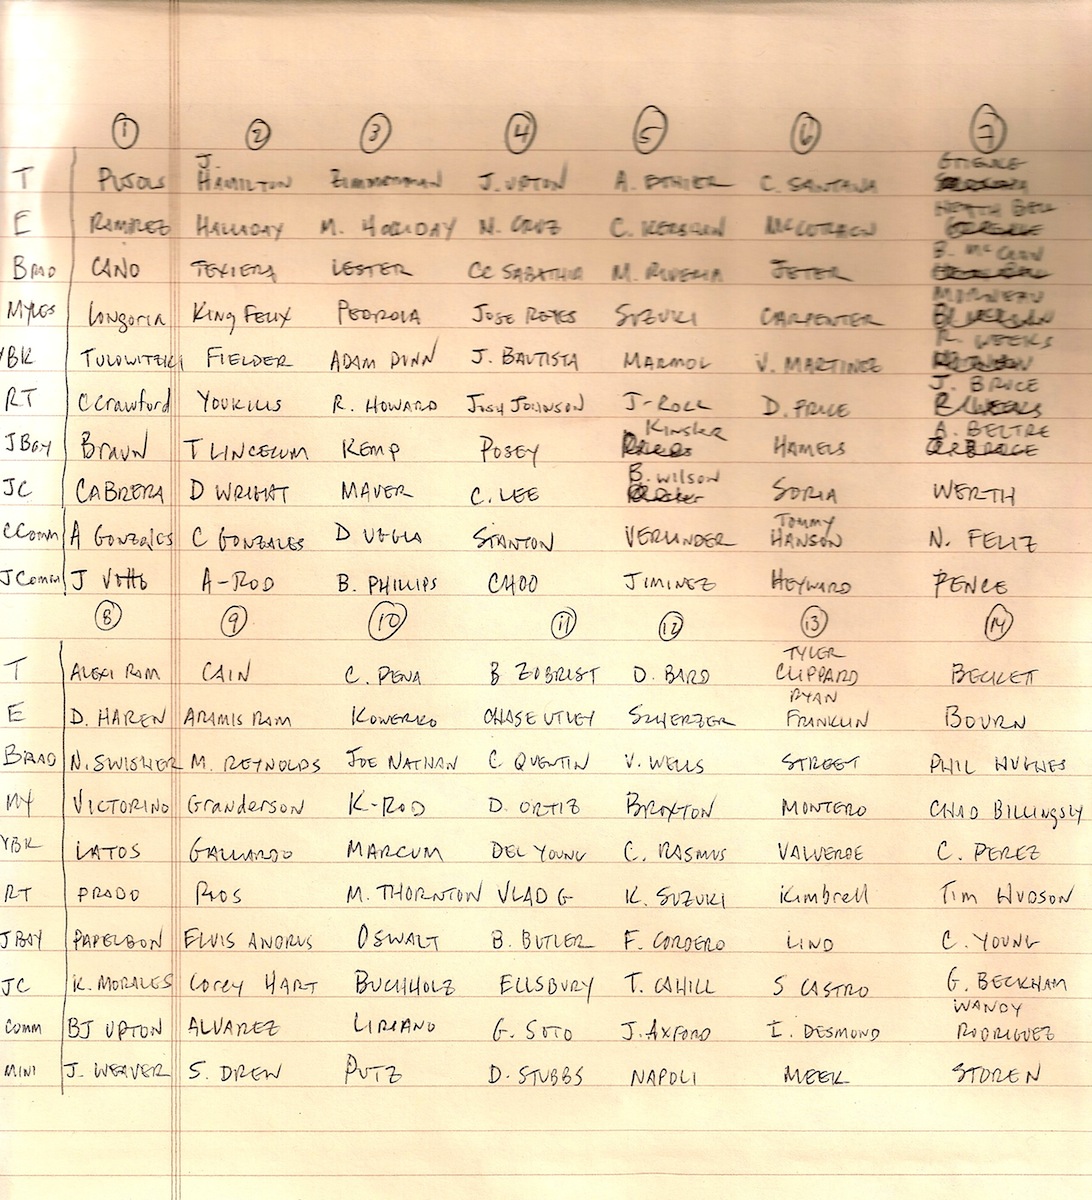 1 2 3 4 5 6 7
T PUJOLS J. HAMILTON ZIMMERMAN J. UPTON A. ETHIER C. SANTANA
E RAMIREZ HALLADAY M. HOLLIDAY N. CRUZ C. KERSHAW MCCUTCHEN HEATH BELL
BRAD CANO TEXIERA LESTER CC SABATHIA M. RIVERIA JETER B. MCCANN
MYLES Longoria KING FELIX PEDROIA JOSE REYES SUZUKI CARPENTER MORNEAU
YBK TULOWITZKI FIELDER ADAM DUNN J. BAUTISTA MARMOL V. MARTINEZ R. WEEKS
RT C Crawford YOUKILIS R. HOWARD JOSH JOHNSON J-ROLL D. PRICE J. BRUCE
JBAY BRAUN T LINCECUM KEMP POSEY KINSLER HAMELS A. BELTRE
JC CABRERA D WRIGHT MAUER C. LEE B. WILSON SORIA WERTH
CComm A GONZALES C GONZALES D UGGLA STANTON VERLANDER TOMMY HANSON N. FELIZ
JComm J VOTTO A-ROD B. PHILLIPS CHOO JIMINEZ HEYWARD PENCE
8 9 10 11 12 13 14
T ALEXI RAM CAIN C. PENA B ZOBRIST D. BARD TYLER CLIPPARD BECKETT
E D. HAREN ARAMIS RAM KONERKO CHASE UTLEY SCHERZER RYAN FRANKLIN BOURN
BRAD N. SWISHER M. REYNOLDS JOE NATHAN C QUENTIN V. WELLS STREET PHIL HUGHES
MY VICTORINO Granderson K-ROD D. ORTIZ BROXTON MONTERO CHAD BILLINGSLY
YBK LATOS GALLARDO MARCUM DEL YOUNG C. RASMUS VALVERDE C. PEREZ
RT PRADO RIOS M. THORNTON VLAD G K. SUZUKI Kimbrell TIM HUDSON
JBAY PAPELBON ELVIS ANDRUS OSWALT B. BUTLER F. CORDERO LIND C. YOUNG
JC K. MORALES COREY HART BUCHHOLZ ELLSBURY T. CAHILL S CASTRO G. BECKHAM
COMM BJ UPTON ALVAREZ LIRIANO G. SOTO J. AXFORD I. DESMOND WANDY RODRIGUEZ
MINI J. WEAVER S. DREW PUTZ D. STUBBS NAPOLI MEEK STOREN